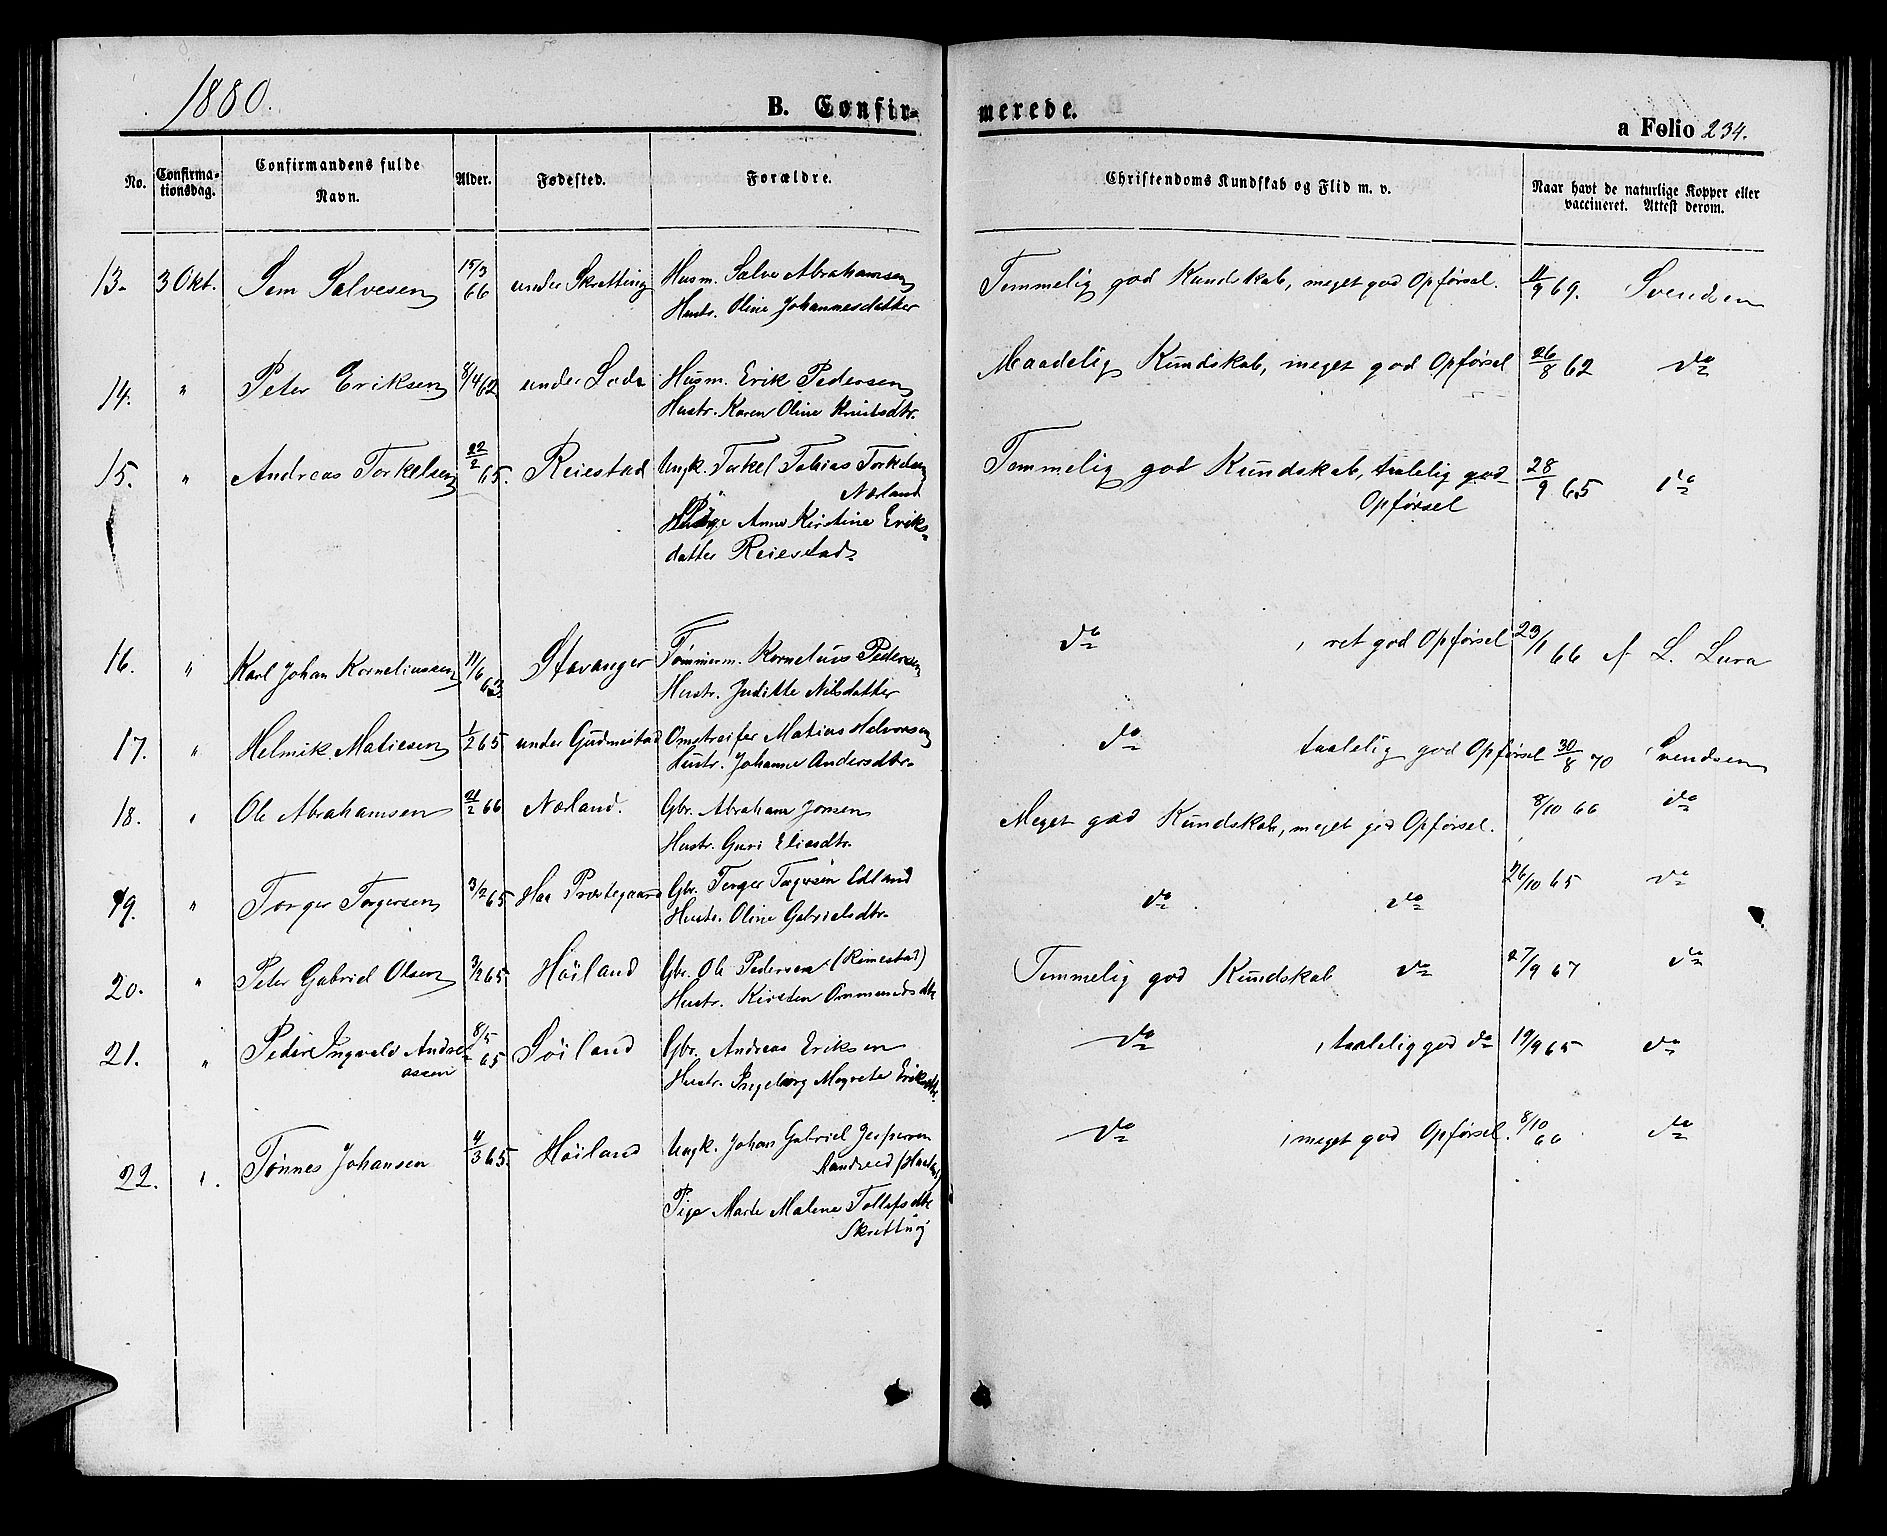 1880.
B. Confir-
merede.
a Folio 234.
No.
Confirma-
tionsdag.
Confirmandens fulde
Navn.
Alder.
Fødested.
Forældre.
Christendoms Kundskab og Flid m. v.
Naar havt de naturlige Kopper eller
vaccineret. Attest derom.
13. 3 Okt. Sem Salvesen 15/3 66 under Skretting Husm. Salve Abrahamsen
Hustr. Oline Johannesdatter
Temmelig god Kundskab, meget god Opførsel. 11/9 69. Svendsen
14. " Peter Eriksen 8/4 62 under Lode Husm. Erik Pedersen
Hustr. Karen Oline Knutsdtr.
Maadelig Kundskab, meget god Opførsel 26/8 62 do
15. " Andreas Torkelsen 22/2 65. Reiestad Ungk. Torkel Tobias Torkelsen
Nærland
Pige Anne Kirstine Eriks-
datter Reiestad
Temmelig god Kundskab, taalelig god
Opførsel
28/9 65 do
16. " Karl Johan Korneliussen 11/6 63 Stavanger Tømmerm. Kornelius Pedersen
Hustr. Juditte Nilsdatter
do , ret god Opførsel 23/1 66 af L. Lura
17. " Helmik Matiesen 1/2 65 under Gudmestad Omstreifer Matias Helvorsen
Hustr. Johanne Andersdtr.
do taalelig god Opførsel 30/8 70 Svendsen
18. " Ole Abrahamsen 21/2 66 Næland. Gbr. Abraham Jonsen
Hustr. Guri Eliasdtr.
Meget god Kundskab, meget god Opførsel. 8/10 66 do
19. " Torger Torgersen 3/2 65 Haa Præstegaard Gbr. Torger Torgersen Edland
Hustr. Oline Gabrielsdtr.
do do 26/10 65 do
20. " Peter Gabriel Olsen 3/2 65 Höiland Gbr. Ole Pedersen (Rimestad)
Hustr. Kirsten Ommundsdtr
Temmelig god Kundskab do 27/9 67 do
21. " Peder Ingvald Andre-
assen
8/5 65 Söiland Gbr. Andreas Eriksen
Hustr. Ingeborg Magrete Eriksdtr.
do , taalelig god do 19/9 65 do
22. " Tønnes Johansen 4/3 65. Höiland Ungk. Johan Gabriel Jespersen
Pige Marte Malene Tollefsdtr
Skretting
do , meget god Opførsel. 8/10 66 do